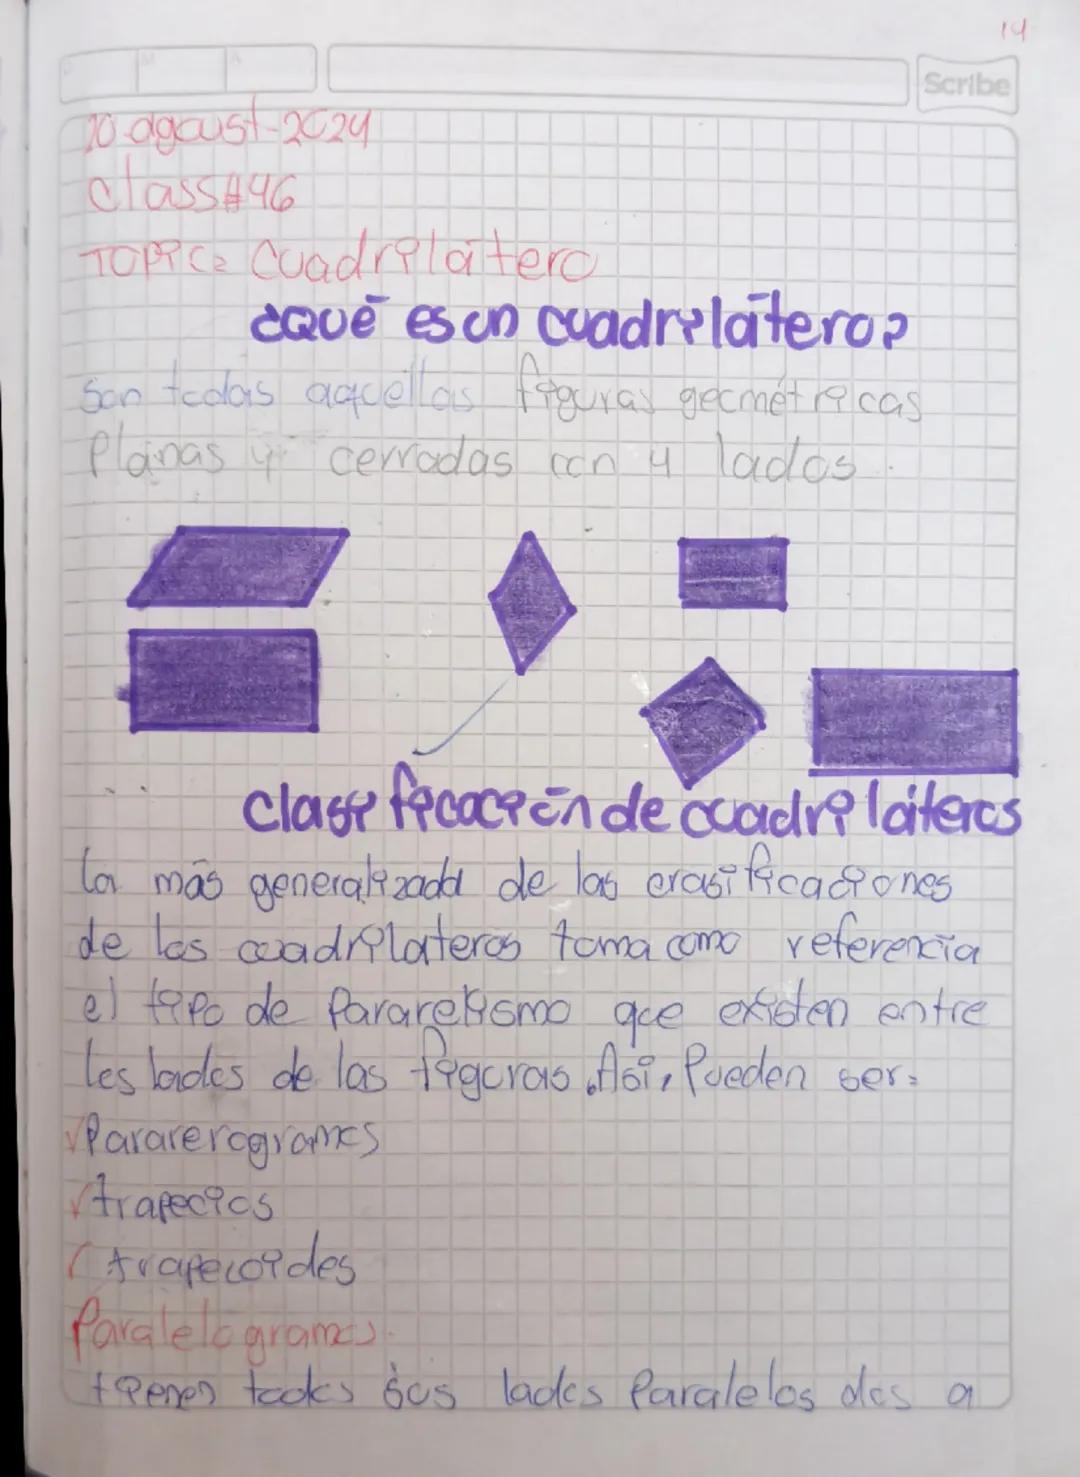 14
Scribe
20-agoust-2024
class#46
TOPIC: Cuadrilátero
¿Qué es un cuadrilátero?
Son todas aquellas figuras geométricas
Planas y cerradas con 4 lados.
Clasificación de cuadriláteros
La más generalizada de las crasificaciones
de los cuadriláteros toma como referencia
el tipo de Pararelismo que existen entre
los lados de las figuras. Así, Pueden ser:
✓Pararerogramos
✓trapecios
trapecoides
Paralelogramos.
tienen todos sus lados Paralelos dos a